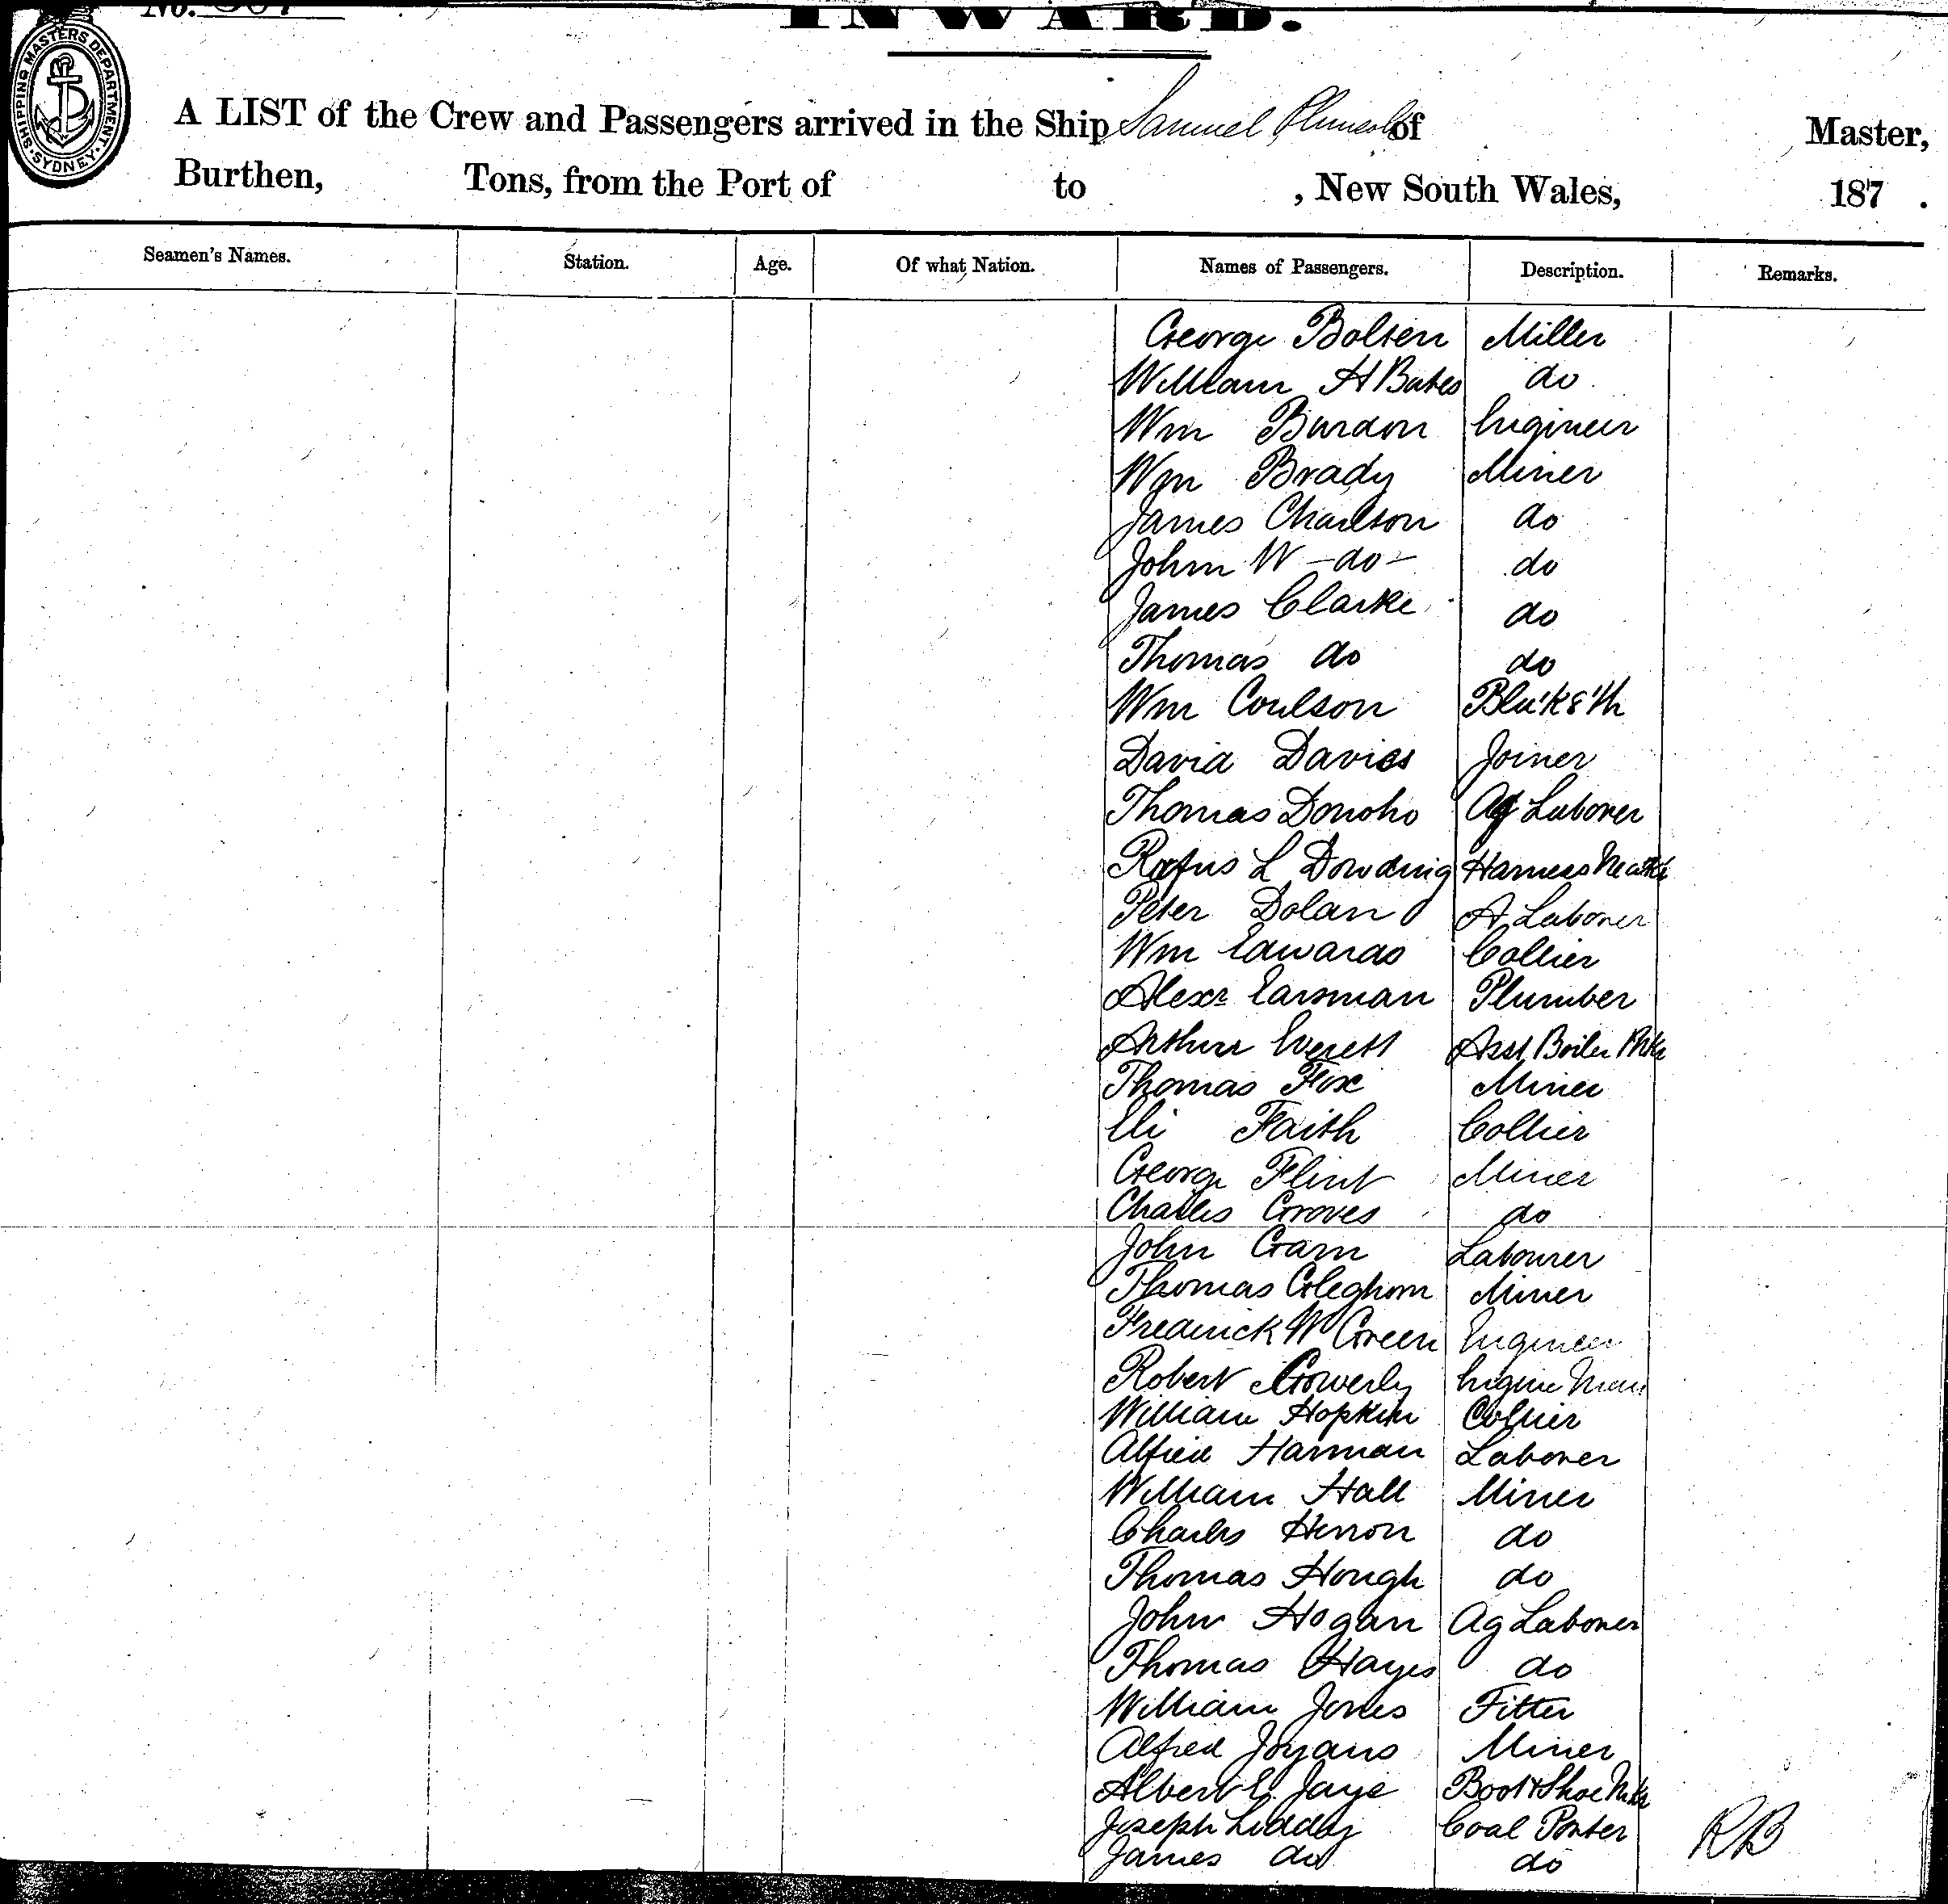 No.
INWARD.
SHIPPING MASTERS DEPARTMENT
SYDNEY
A LIST of the Crew and Passengers arrived in the Ship Samuel Plimsoll of Master,
Burthen, Tons, from the Port of to , New South Wales, 187 .
Seamen's Names. Station. Age. Of what Nation. Names of Passengers. Description. Remarks.
George Bolten Miller
William H Bates do
Wm Burdon Engineer
Wm Brady Miner
James Charlson do
John W -do- do
James Clarke do
Thomas do do
Wm Coulson Blacks'th
David Davies Joiner
Thomas Donoho Ag Laborer
Rufus L Dowding Harness
Peter Dolan A Laborer
Wm Edwards Collier
Alexr Earsman Plumber
Arthur Everett Asst Boiler Mkr
Thomas Fox Miner
Eli Faith Collier
George Flint Miner
Charles Groves do
John Gam Labourer
Thomas Gleghorn Miner
Frederick W Green Engineer
Robert Gowerly Engine Man
William Hopkin Collier
Alfred Harman Laborer
William Hall Miner
Charles Herron do
Thomas Hough do
John Hogan Ag Laborer
Thomas Hayes do
William Jones Fitter
Alfred Joyans Miner
Albert E Jaye Boot & Shoe Mkr
Joseph Liddy Coal Porter
James do do
RB